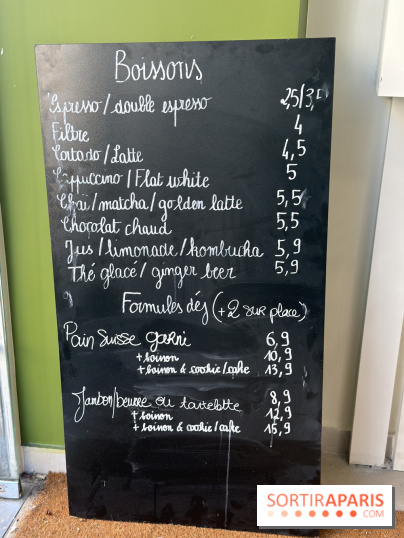 Boissons
Espresso/double espresso 2,5/3,5
Filtre 4
Cortado/Latte 4,5
Cappuccino/Flat white 5
Chai/matcha/golden latte 5,5
Chocolat chaud 5,5
Jus/limonade/kombucha 5,9
Thé glacé/ginger beer 5,9
Formules déj (+2 sur place)
Pain Suisse garni 6,9
+ boisson 10,9
+ boisson & cookie/cake 13,9
Jambon/beurre ou tartelette 8,9
+ boisson 12,9
+ boisson & cookie/cake 15,9
SORTIRAPARIS
.COM